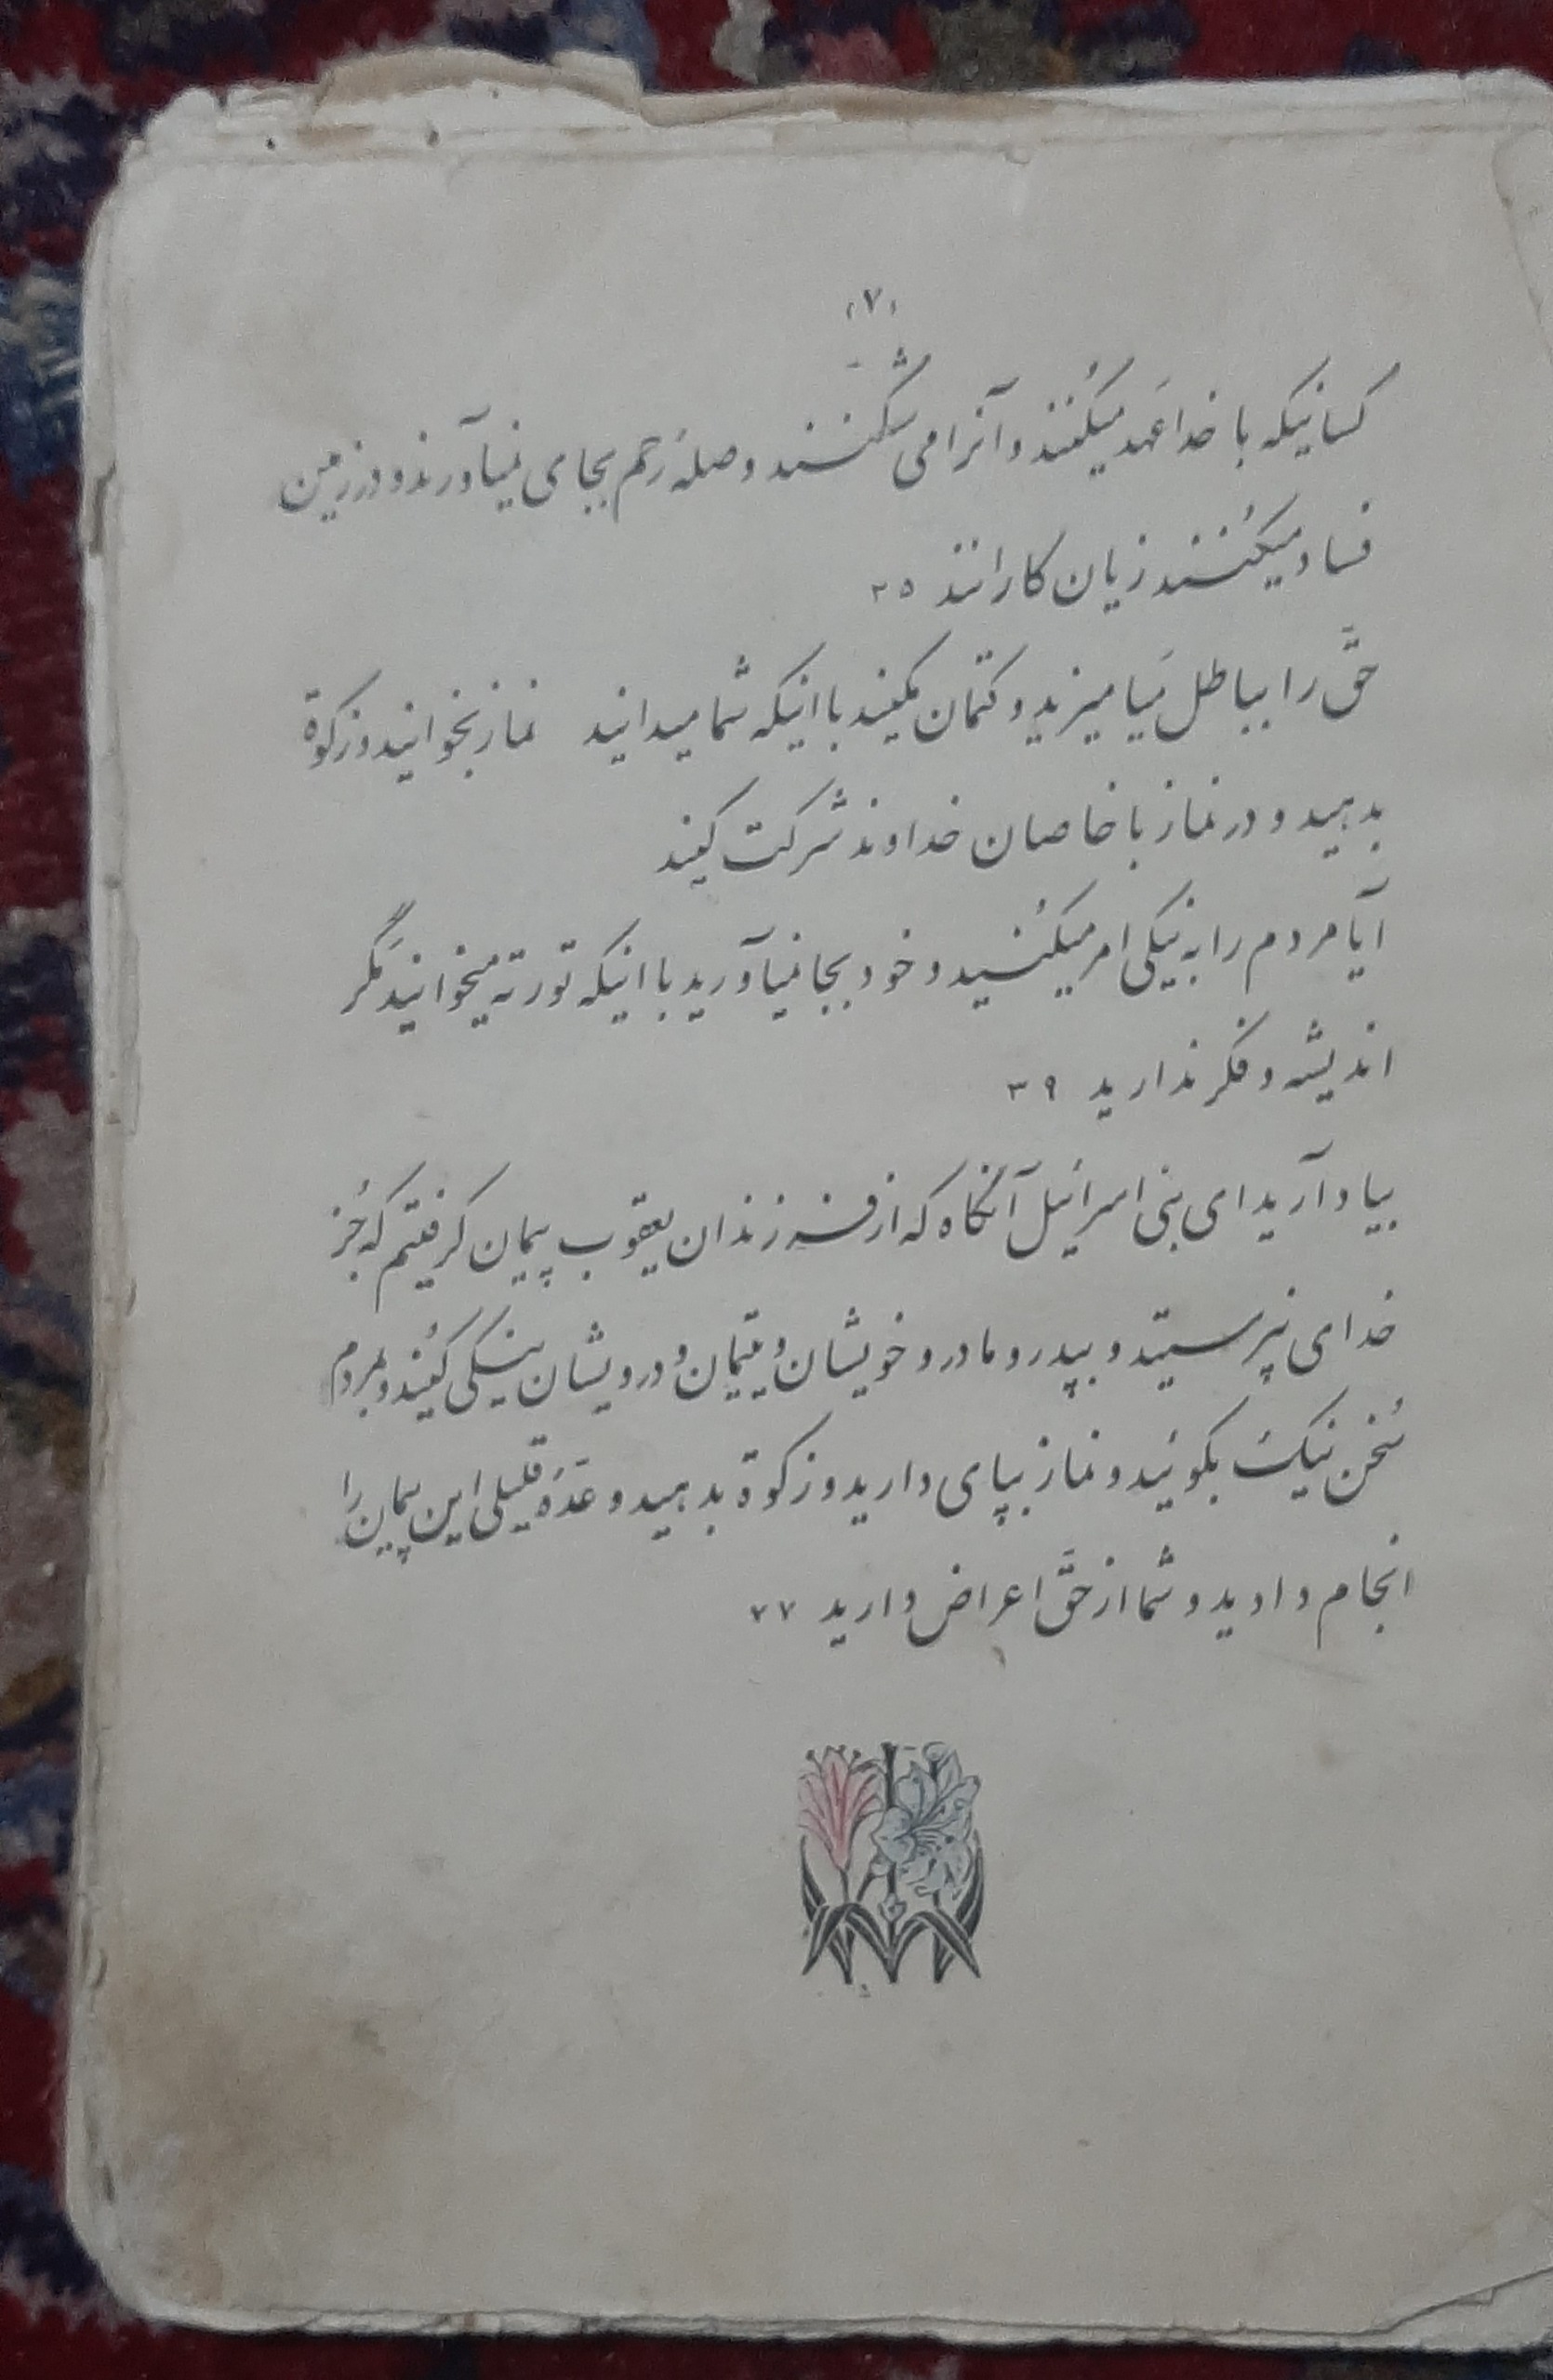 (۷)
کسانیکه با خدا عَهد میکُنند و آنرا می شکنند وصلهٔ رَحم بجای نمیآورند و در زمین
فساد میکُنند زیان کارانند ۲۵
حَقّ را بباطل مَیامیزید و کتمان مکنید با اینکه شما میدانید نماز بخوانید و زکوة
بدهید و در نماز با خاصان خداوند شرکت کنید
آیا مردم را به نیکی امر میکُنید و خود بجا نمیآورید با اینکه تورته میخوانید مَگر
اندیشه و فکر ندارید ۳۹
بیاد آرید ای بنی اسرائیل آنگاه که از فرزندان یعقوب پیمان گرفتیم که جُز
خدای نپرستید و بپدر و مادر و خویشان و یتیمان و درویشان نیکی کُنید و بمردم
سُخن نیک بگوئید و نماز بپای دارید و زکوة بدهید و عَدّهٔ قلیلی این پیمان را
انجام دادید و شما از حَقّ اعراض دارید ۷۷